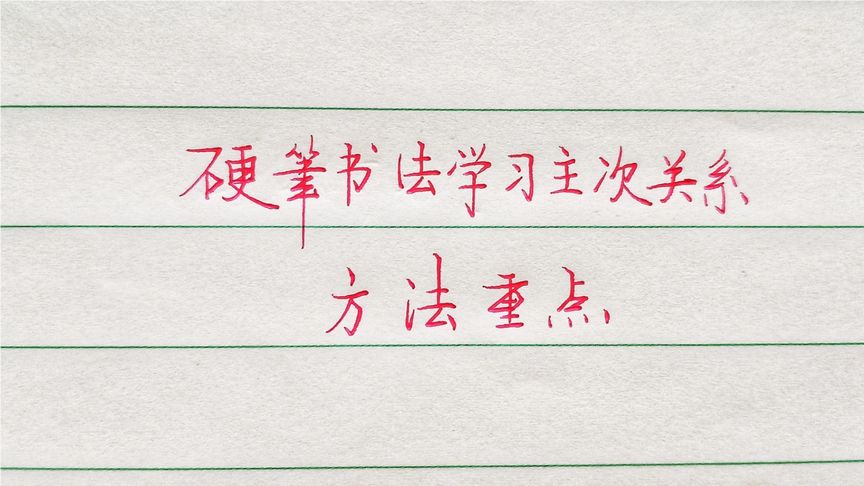 硬筆书法学习主次关系
方法重点